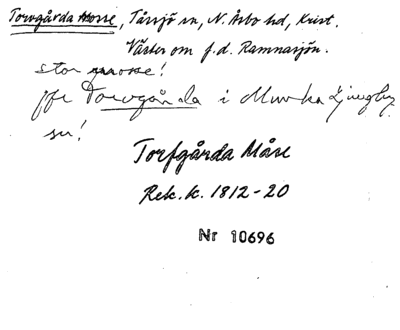 Torvgårda Mosse, Tåssjö sn, N. Åsbo hd, Krist.
Väster om f.d. Ramnasjön.
stor mosse!
jfr Torvgårda i Munka Ljungby
sn!
Torfgårda Måse
Rek. k. 1812-20
Nr 10696